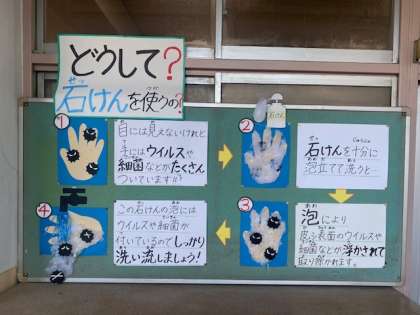 どうして?
石けんを使うの?
石けん
①
目には見えないけれど
手にはウイルスや
細菌などがたくさん
ついています!!
②
石けんを十分に
泡立てて洗うと…
③
泡により
皮ふ表面のウイルスや
細菌などが浮かされて
取り除かれます。
④
この石けんの泡には
ウイルスや細菌が
付いているのでしっかり
洗い流しましょう!